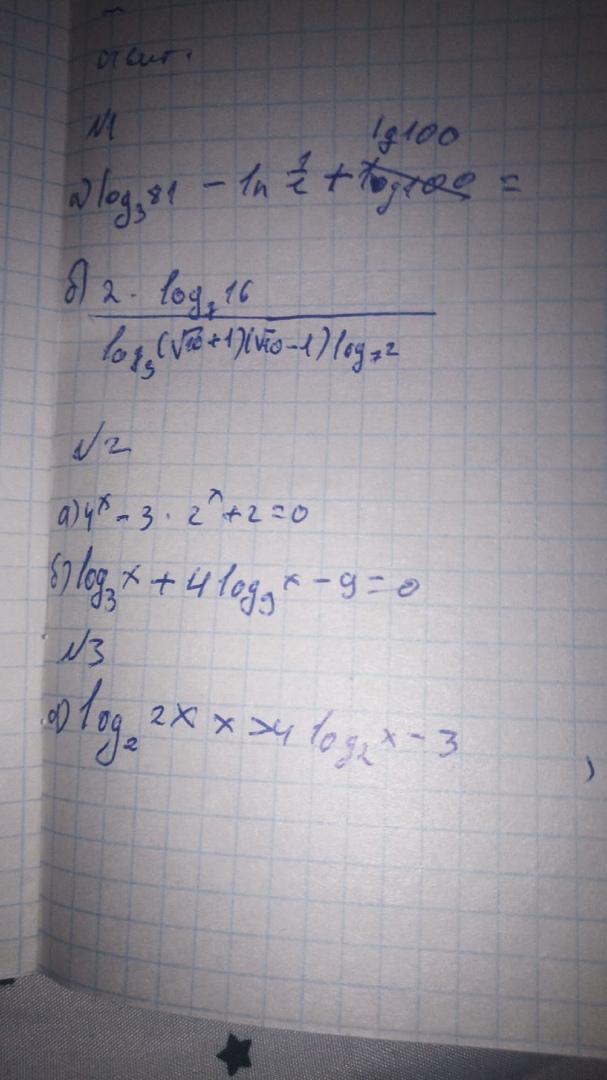 ответ.
№1
lg100
а) log₃81 - ln 1/e + =
б) 2 · log₇16
log₉(√10+1)(√10-1) log₇2
№2
а) 4ˣ - 3 · 2ˣ + 2 = 0
б) log₃x + 4 log₉x - 9 = 0
№3
а) log₂ 2x x > 4 log₂x - 3